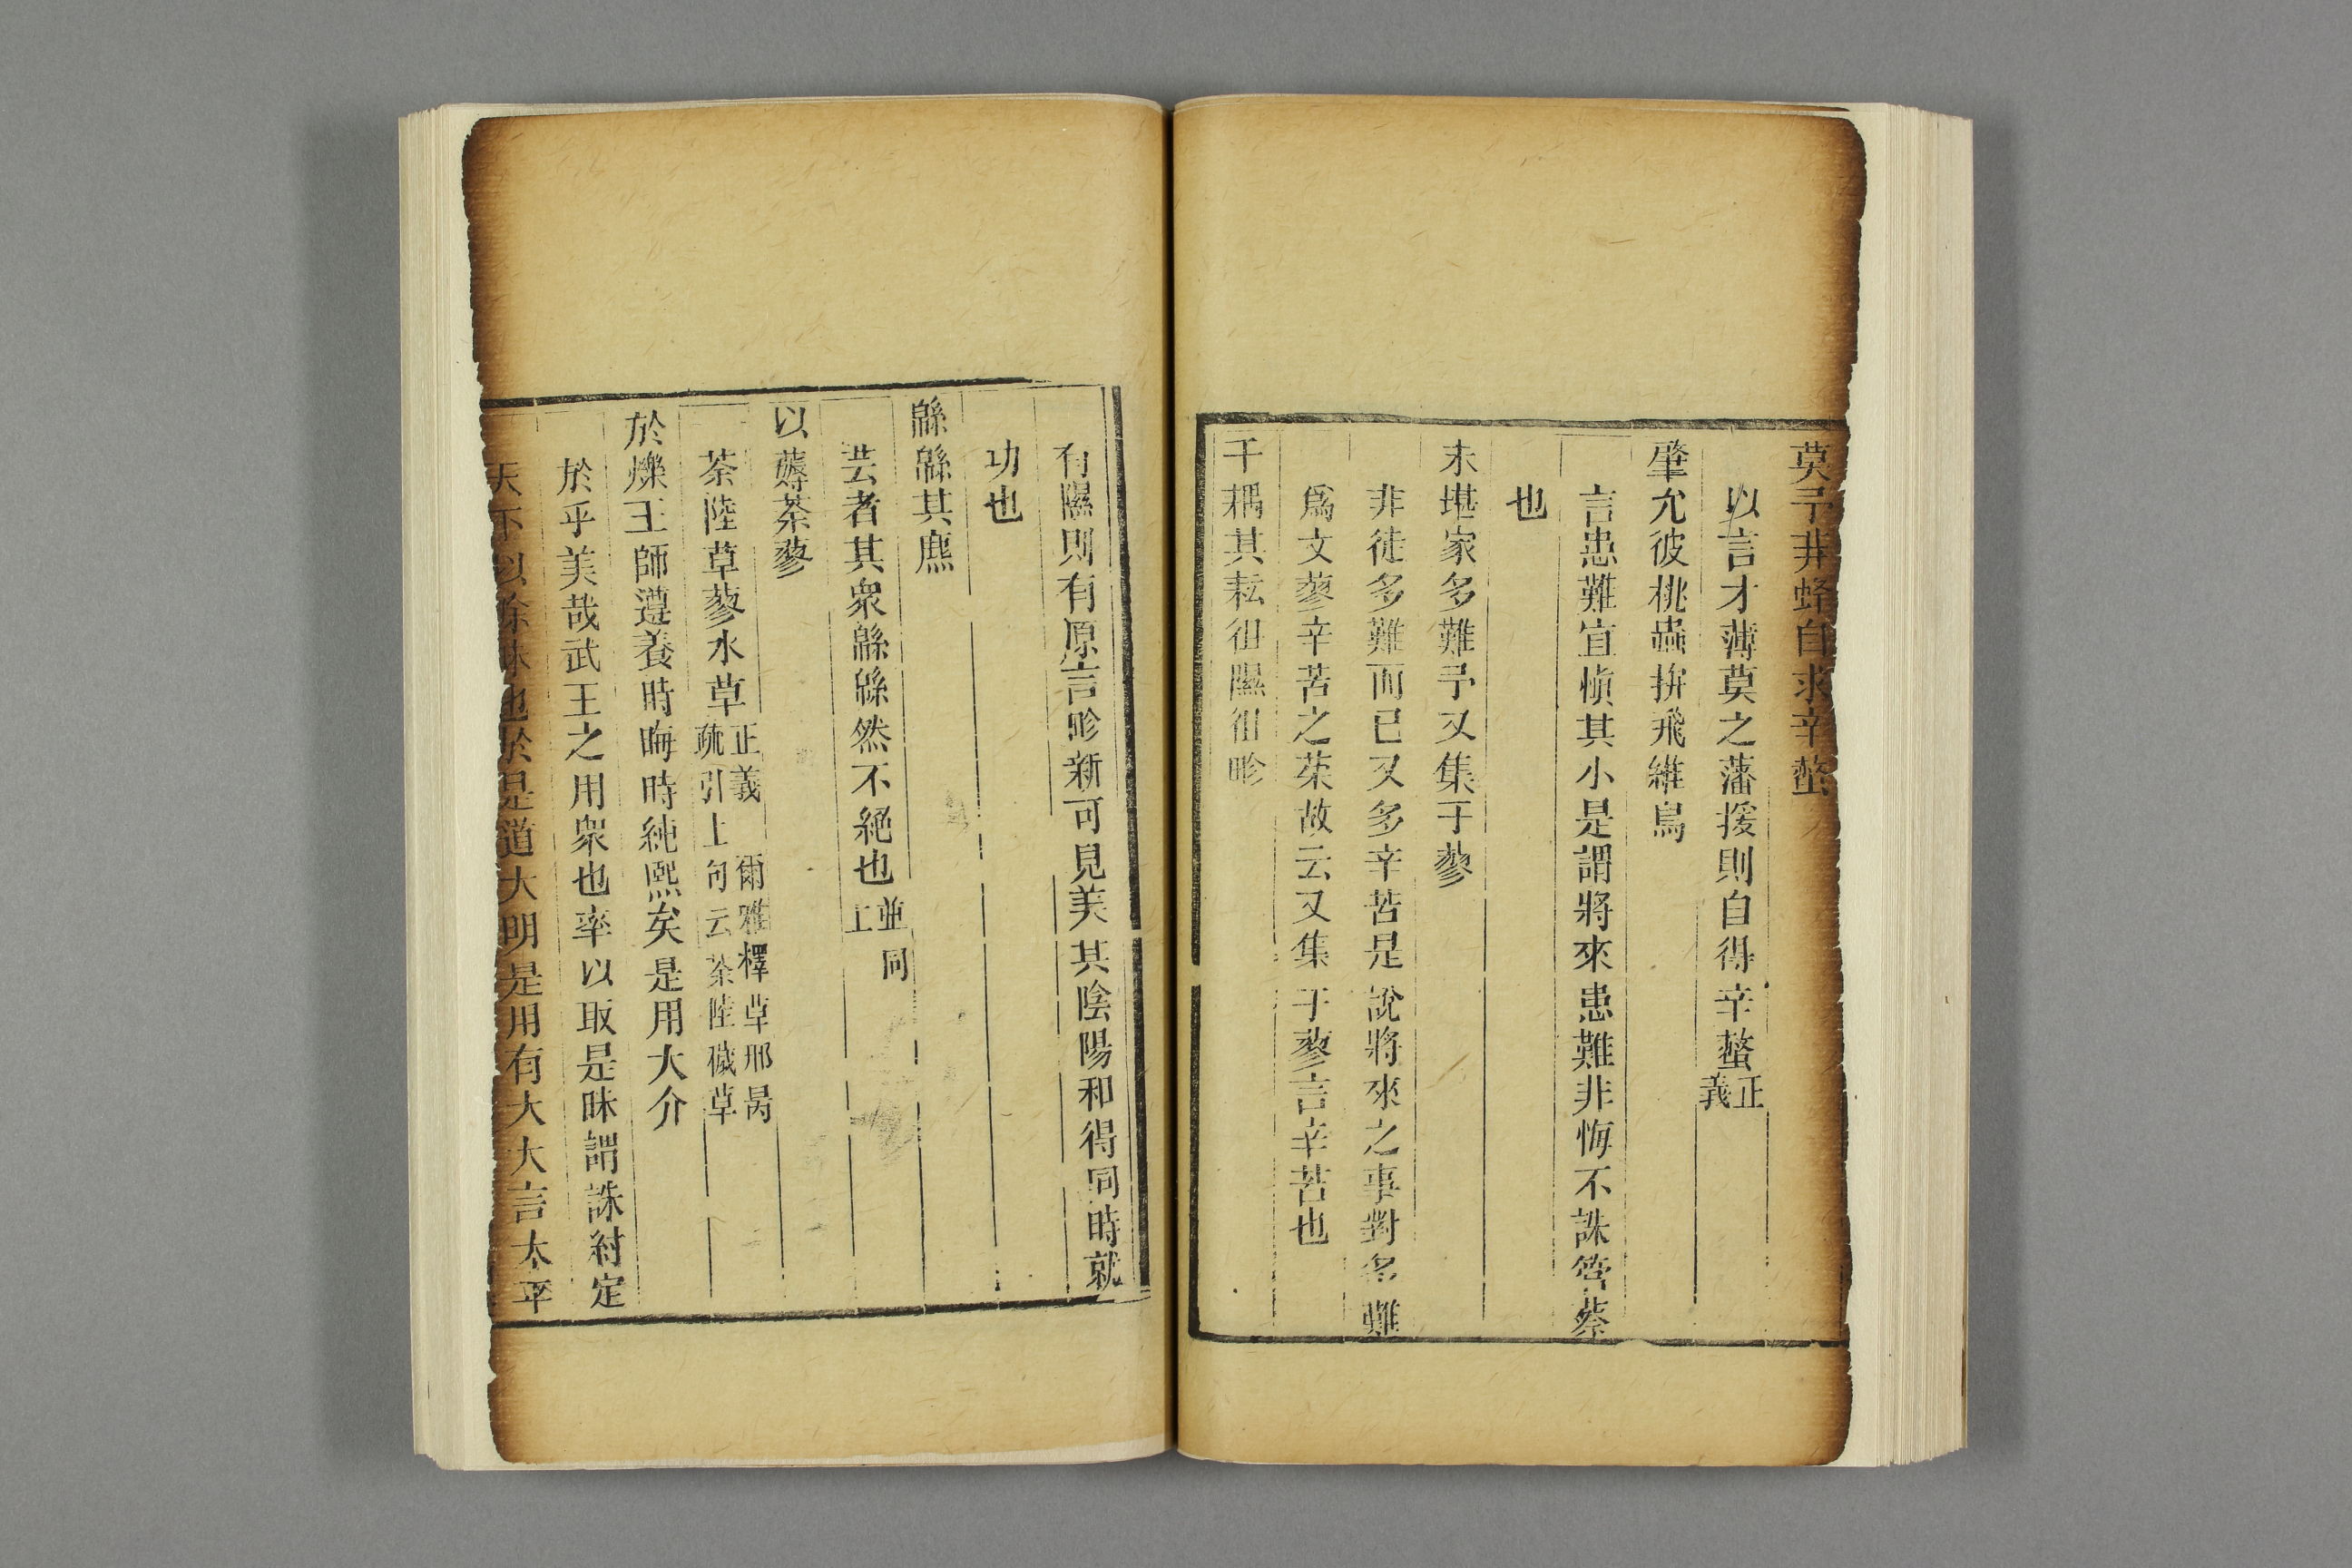 莫予荓蜂自求辛螫
以言才薄莫之藩援則自得辛螫正義
肇允彼桃蟲拚飛維鳥
言患難宜愼其小是謂將來患難非悔不誅管蔡
也
未堪家多難予又集于蓼
非徒多難而已又多辛苦是說將來之事對多難
爲文蓼辛苦之菜故云又集于蓼言辛苦也
千耦其耘徂隰徂畛
有隰則有原言畛新可見美其陰陽和得同時就
功也
緜緜其麃
芸者其衆緜緜然不絕也並同上
以薅荼蓼
荼陸草蓼水草正義 爾雅釋草邢昺疏引上句云荼陸穢草
於爍王師遵養時晦時純熙矣是用大介
於乎美哉武王之用衆也率以取是昧謂誅紂定
天下以除昧也於是道大明是用有大大言太平